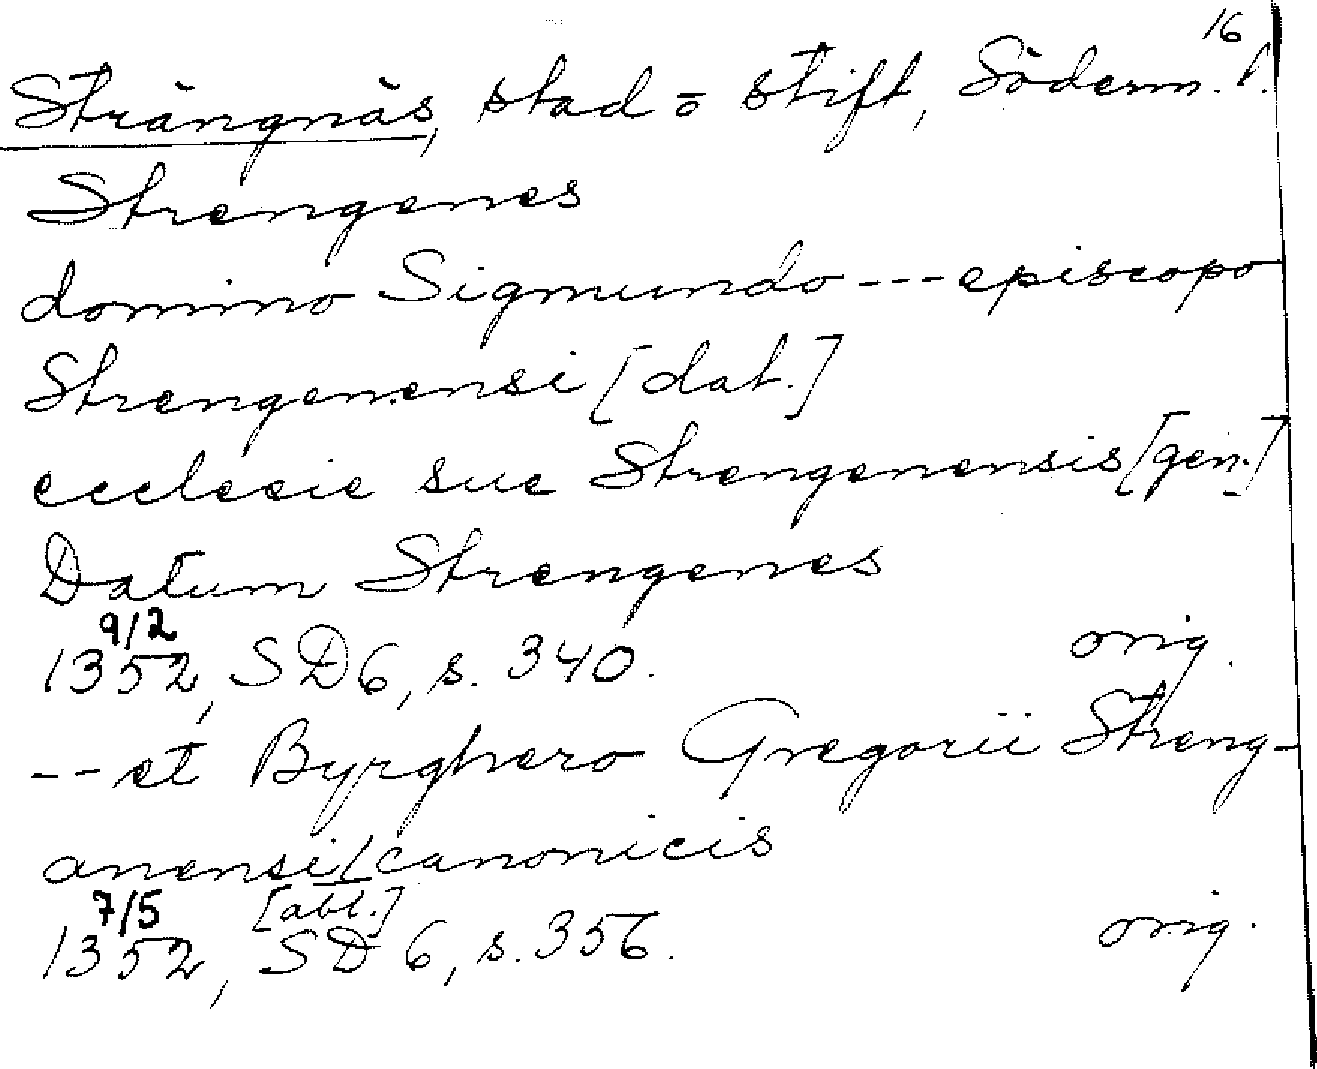 16
Strängnäs, stad o stift, Söderm. l.
Strengenes
domino Sigmundo --- episcopo
Strengenensi [dat.]
ecclesie sue Strengenensis [gen.]
Datum Strengenes
9/2
1352, SD6, s. 340. orig.
-- et Byrghero Gregorii Streng-
anensi/canonicis
7/5 [abl.]
1352, SD 6, s. 356. orig.